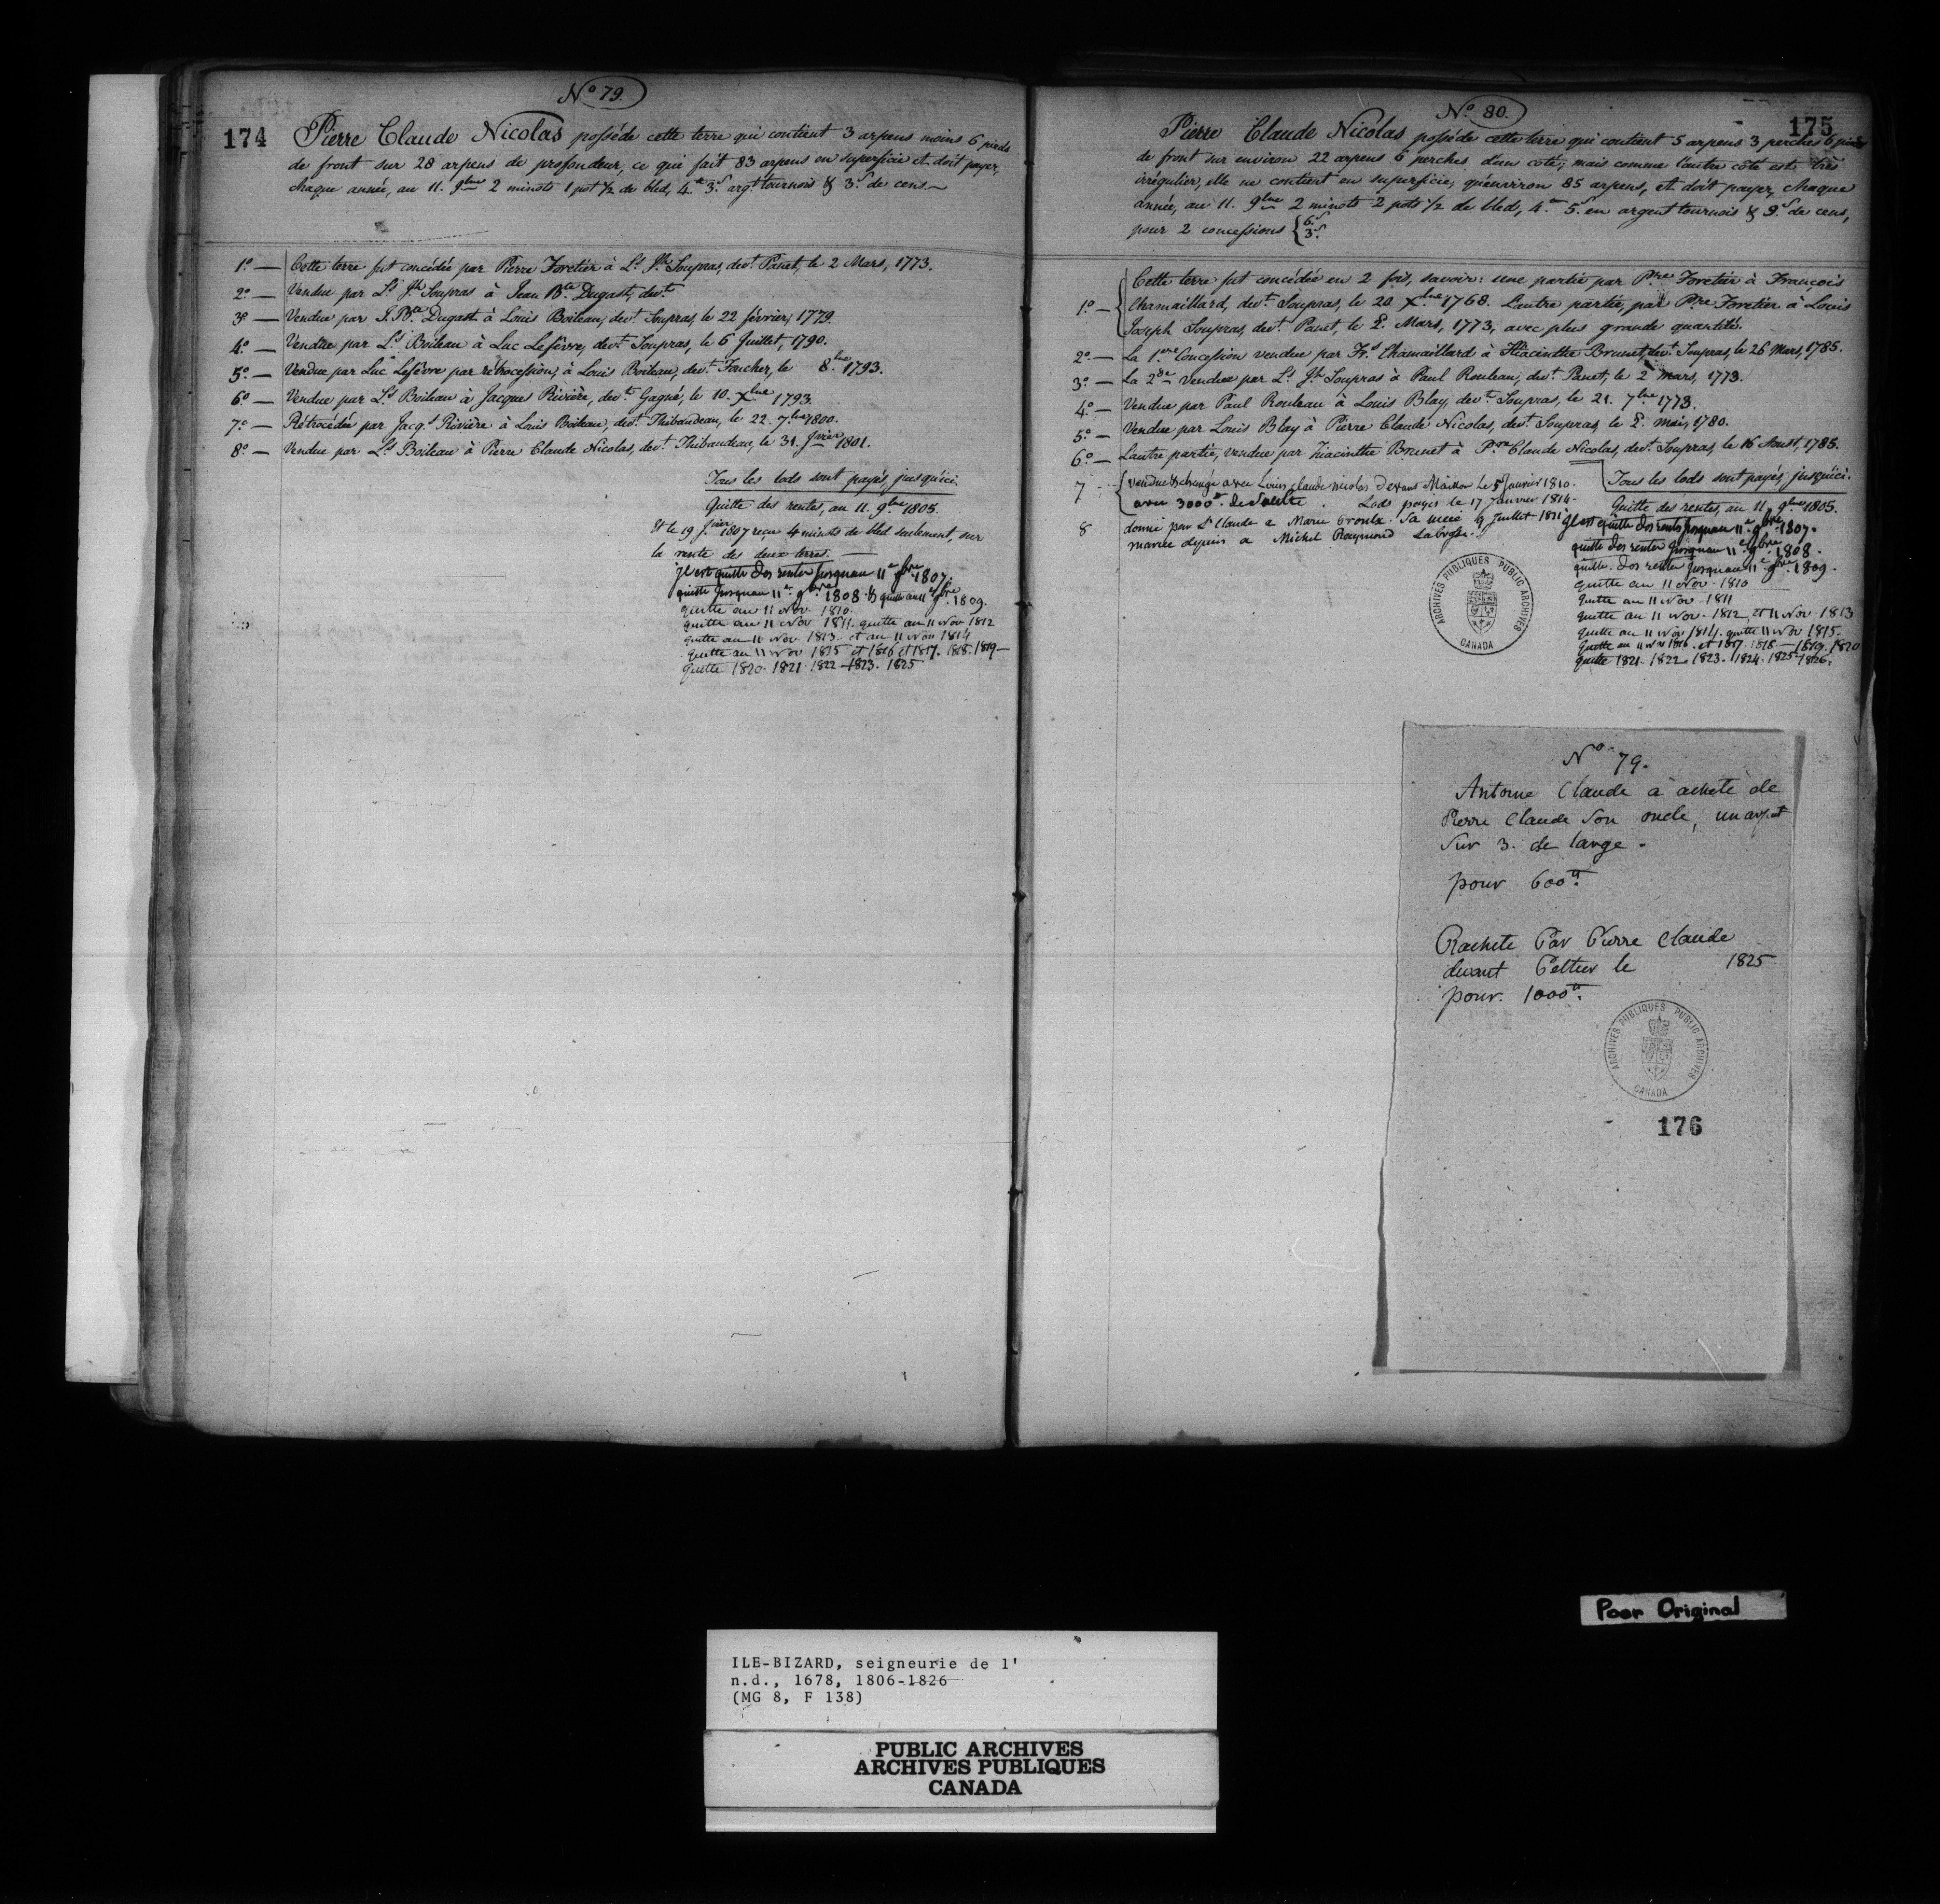 174
Nº 79.
Pierre Claude Nicolas posséde cette terre qui contient 3 arpens moins 6 pieds
de front sur 28 arpens de profondeur, ce qui fait 83 arpens en superficie et doit payer,
chaque année, au 11. 9bre 2 minots 1 pot 1/2 de bled, 4.tt 3.s argt tournois & 3.s de cens
1º — Cette terre fut concédée par Pierre Foretier à Ls Jh Soupras, devt Panet, le 2 Mars, 1773.
2º — Vendue par Ls Jh Soupras à Jean Bte Dugast, devt
3º — Vendue par J. Bte Dugast à Louis Boileau, devt Soupras, le 22 février, 1779.
4º — Vendue par Ls Boileau à Luc Lefèvre, devt Soupras, le 6 Juillet, 1790.
5º — Vendue par Luc Lefèvre par rétrocession, à Louis Boileau, devt Foucher, le 8.bre 1793.
6º — Vendue par Ls Boileau à Jacques Rivière, devt Gagné, le 10. Xbre 1793.
7º — Rétrocédée par Jacqs Rivière à Louis Boileau, devt Thibaudeau, le 22. 7bre 1800.
8º — Vendue par Ls Boileau à Pierre Claude Nicolas, devt Thibaudeau, le 31. Jvier 1801.
Tous les lods sont payés, jusqu'ici.
Quitte des rentes, au 11. 9bre 1805.
Et le 19 Jvier 1807 reçu 4 minots de bled seulement, sur
la rente des deux terres.
jl est quitte des rentes jusquau 11e 9bre 1807.
quitte jusquau 11e 9bre 1808 & quitte au 11e 9bre 1809.
quitte au 11 Nov. 1810.
quitte au 11 Nov 1811. quitte au 11 Nov 1812
quitte au 11 Nov. 1813. et au 11 Nov 1814
quitte au 11 Nov 1815 et 1816 et 1817. 1818. 1819
quitte 1820. 1821. 1822 1823. 1825
175
Nº 80.
Pierre Claude Nicolas posséde cette terre qui contient 5 arpens 3 perches 6 pieds
de front sur environ 22 arpens 6 perches d'un coté; mais comme l'autre côté est très
irrégulier, elle ne contient en superficie, qu'environ 85 arpens, et doit payer, chaque
année, au 11. 9bre 2 minots 2 pots 1/2 de bled, 4.tt 5.s en argent tournois & 9.s de cens,
pour 2 concessions { 6.s
3.s
1º — Cette terre fut concédée en 2 fois, savoir: une partie par Pre Foretier à François
Chamaillard, devt Soupras, le 20 Xbre 1768. L'autre partie, par Pre Foretier à Louis
Joseph Soupras, devt Panet, le 2. Mars, 1773, avec plus grande quantité.
2º — La 1ere Concession vendue par Frs Chamaillard à Hiacinthe Brunet, devt Soupras, le 26 Mars, 1785.
3º — La 2de vendue par Ls Jh Soupras à Paul Rouleau, devt Panet, le 2 Mars, 1773.
4º — Vendue par Paul Rouleau à Louis Blay, devt Soupras, le 21. 7bre 1773.
5º — Vendue par Louis Blay à Pierre Claude Nicolas, devt Soupras, le 2. mai, 1780.
6º — L'autre partie, vendue par hiacinthe Brunet à Pre Claude Nicolas, devt Soupras, le 16 Aoust, 1785.
Tous les lods sont payés, jusqu'ici.
7 { vendue & changé avec Louis Claude Nicolas devant Maillou le 5 Janvier 1810.
avec 3000tt de soulte. Lods payés le 17 Janvier 1814
8 donné par Ls Claude a Marie sa mere 9 Juillet 1811
mariee depuis a Michel Raymond Labrosse.
Quitte des rentes, au 11. 9bre 1805.
jl est quitte des rentes jusquau 11e 9bre 1807.
quitte des rentes jusquau 11e 9bre 1808.
quitte des rentes jusquau 11e 9bre 1809.
quitte au 11 Nov. 1810
quitte au 11 Nov. 1811
quitte au 11 Nov. 1812, et 11 Nov. 1813
quitte au 11 Nov 1814. quitte 11 Nov 1815.
quitte au 11 Nov 1816. et 1817. 1818 — 1819. 1820
quitte 1821. 1822 1823. 1824. 1825 1826.
ARCHIVES PUBLIQUES PUBLIC ARCHIVES
CANADA
Nº 79.
Antoine Claude à acheté de
Pierre Claude son oncle, un arpent
sur 3. de large.
pour 600tt.
Rachete Par Pierre Claude
devant Peltier le 1825
pour. 1000tt.
ARCHIVES PUBLIQUES PUBLIC ARCHIVES
CANADA
176
Poor Original
ILE-BIZARD, seigneurie de l'
n.d., 1678, 1806-1826
(MG 8, F 138)
PUBLIC ARCHIVES
ARCHIVES PUBLIQUES
CANADA